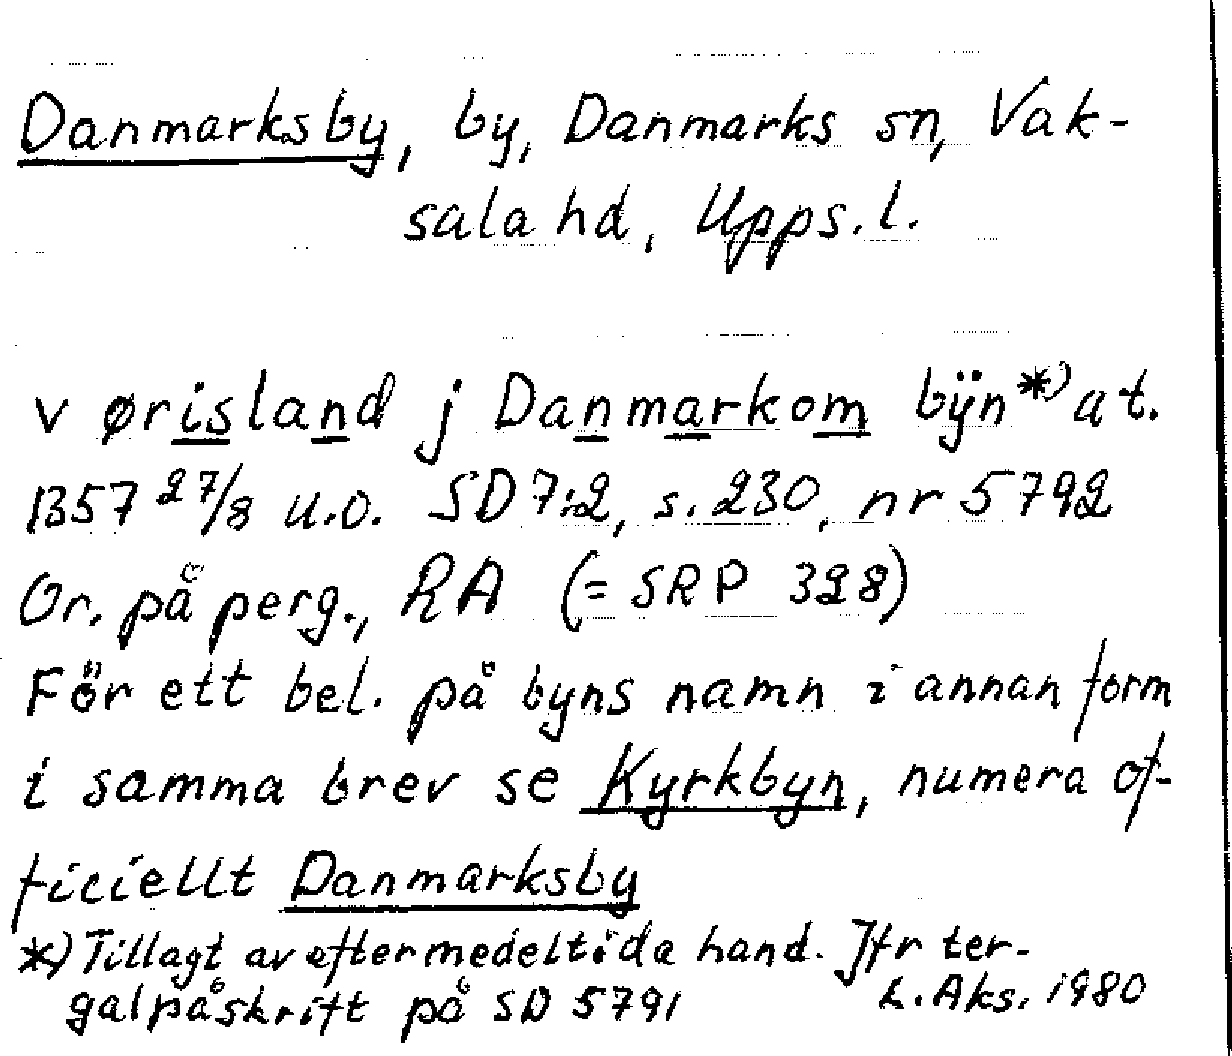 Danmarksby, by, Danmarks sn, Vak-
sala hd, Upps.l.
v ørisland j Danmarkom bÿn*) at.
1357 27/8 u.o. SD 7:2, s. 230, nr 5792
Or. på perg., RA (= SRP 328)
För ett bel. på byns namn i annan form
i samma brev se Kyrkbyn, numera of-
ficiellt Danmarksby
*) Tillagt av eftermedeltida hand. Jfr ter-
galpåskrift på SD 5791
L. Aks. 1980